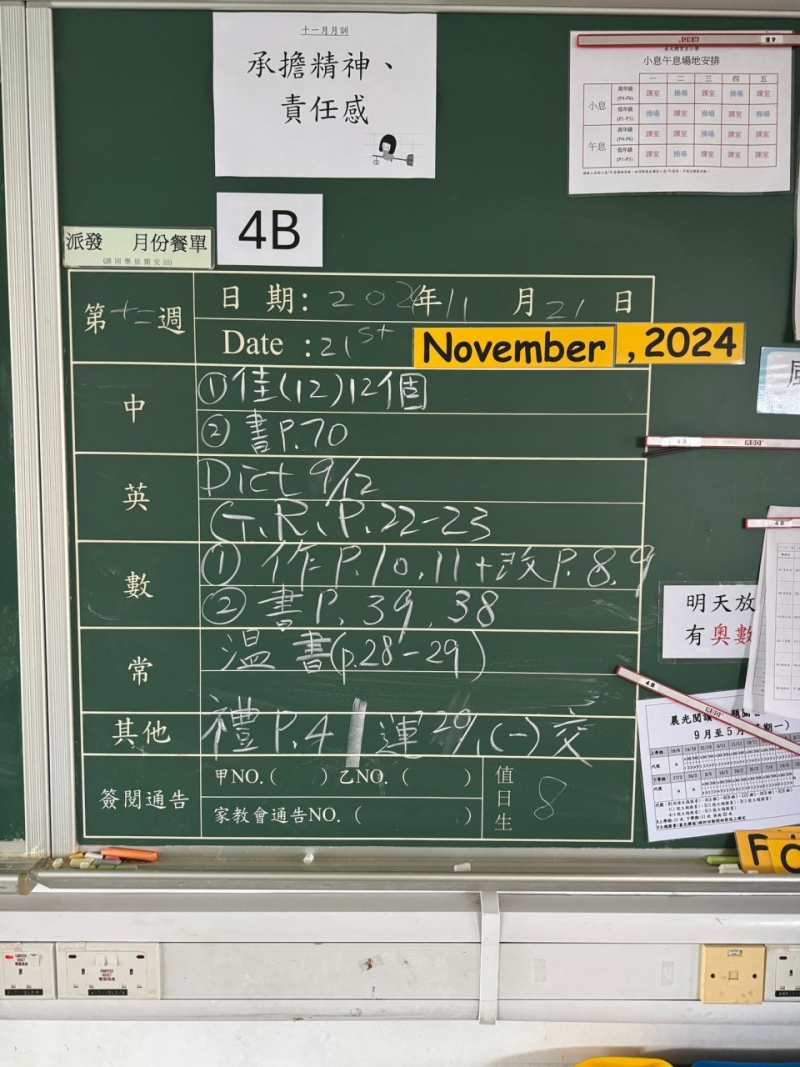 十一月月訓
承擔精神、
責任感
小息午息場地安排
一 二 三 四 五
小息 高年級 (P4-P6) 課室 操場 課室 操場 課室
低年級 (P1-P3) 操場 課室 操場 課室 操場
午息 高年級 (P4-P6) 課室 課室 操場 課室 課室
低年級 (P1-P3) 課室 操場 課室 課室 課室
4B
派發 月份餐單
(請同學依期交回)
第十二週
日期: 2024年11月21日
Date : 21st November , 2024
中
①佳(12)12個
② 書P.70
英
Dict 9/12
G.R. P.22-23
數
① 作P.10,11+改P.8,9
② 書P. 39, 38
常
溫書(p.28-29)
其他
禮P.4 | 連29,(一)交
簽閱通告
甲NO.( ) 乙NO. ( )
家教會通告NO. ( )
值日生 8
明天放
有奧數
晨光閱讀
9月至5月